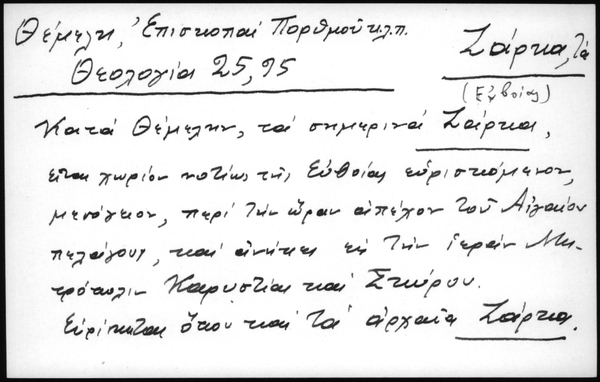 Θέμελη, Ἐπισκοπαί Πορθμοῦ κ.λ.π.
Θεολογία 25, 95
Ζάρκα, τά
(Εὐβοίας)
Κατά Θέμελην, τά σημερινά Ζάρκα,
εἶναι χωρίον νοτίως τῆς Εὐβοίας εὑρισκόμενον,
μεσόγειον, περί τήν ὥραν ἀπέχον τοῦ Αἰγαίου
πελάγους, καί ἀνήκει εἰς τήν ἱεράν Μη-
τρόπολιν Καρυστίας καί Σκύρου.
Εὑρίσκεται ὅπου καί τά ἀρχαῖα Ζάρκα.